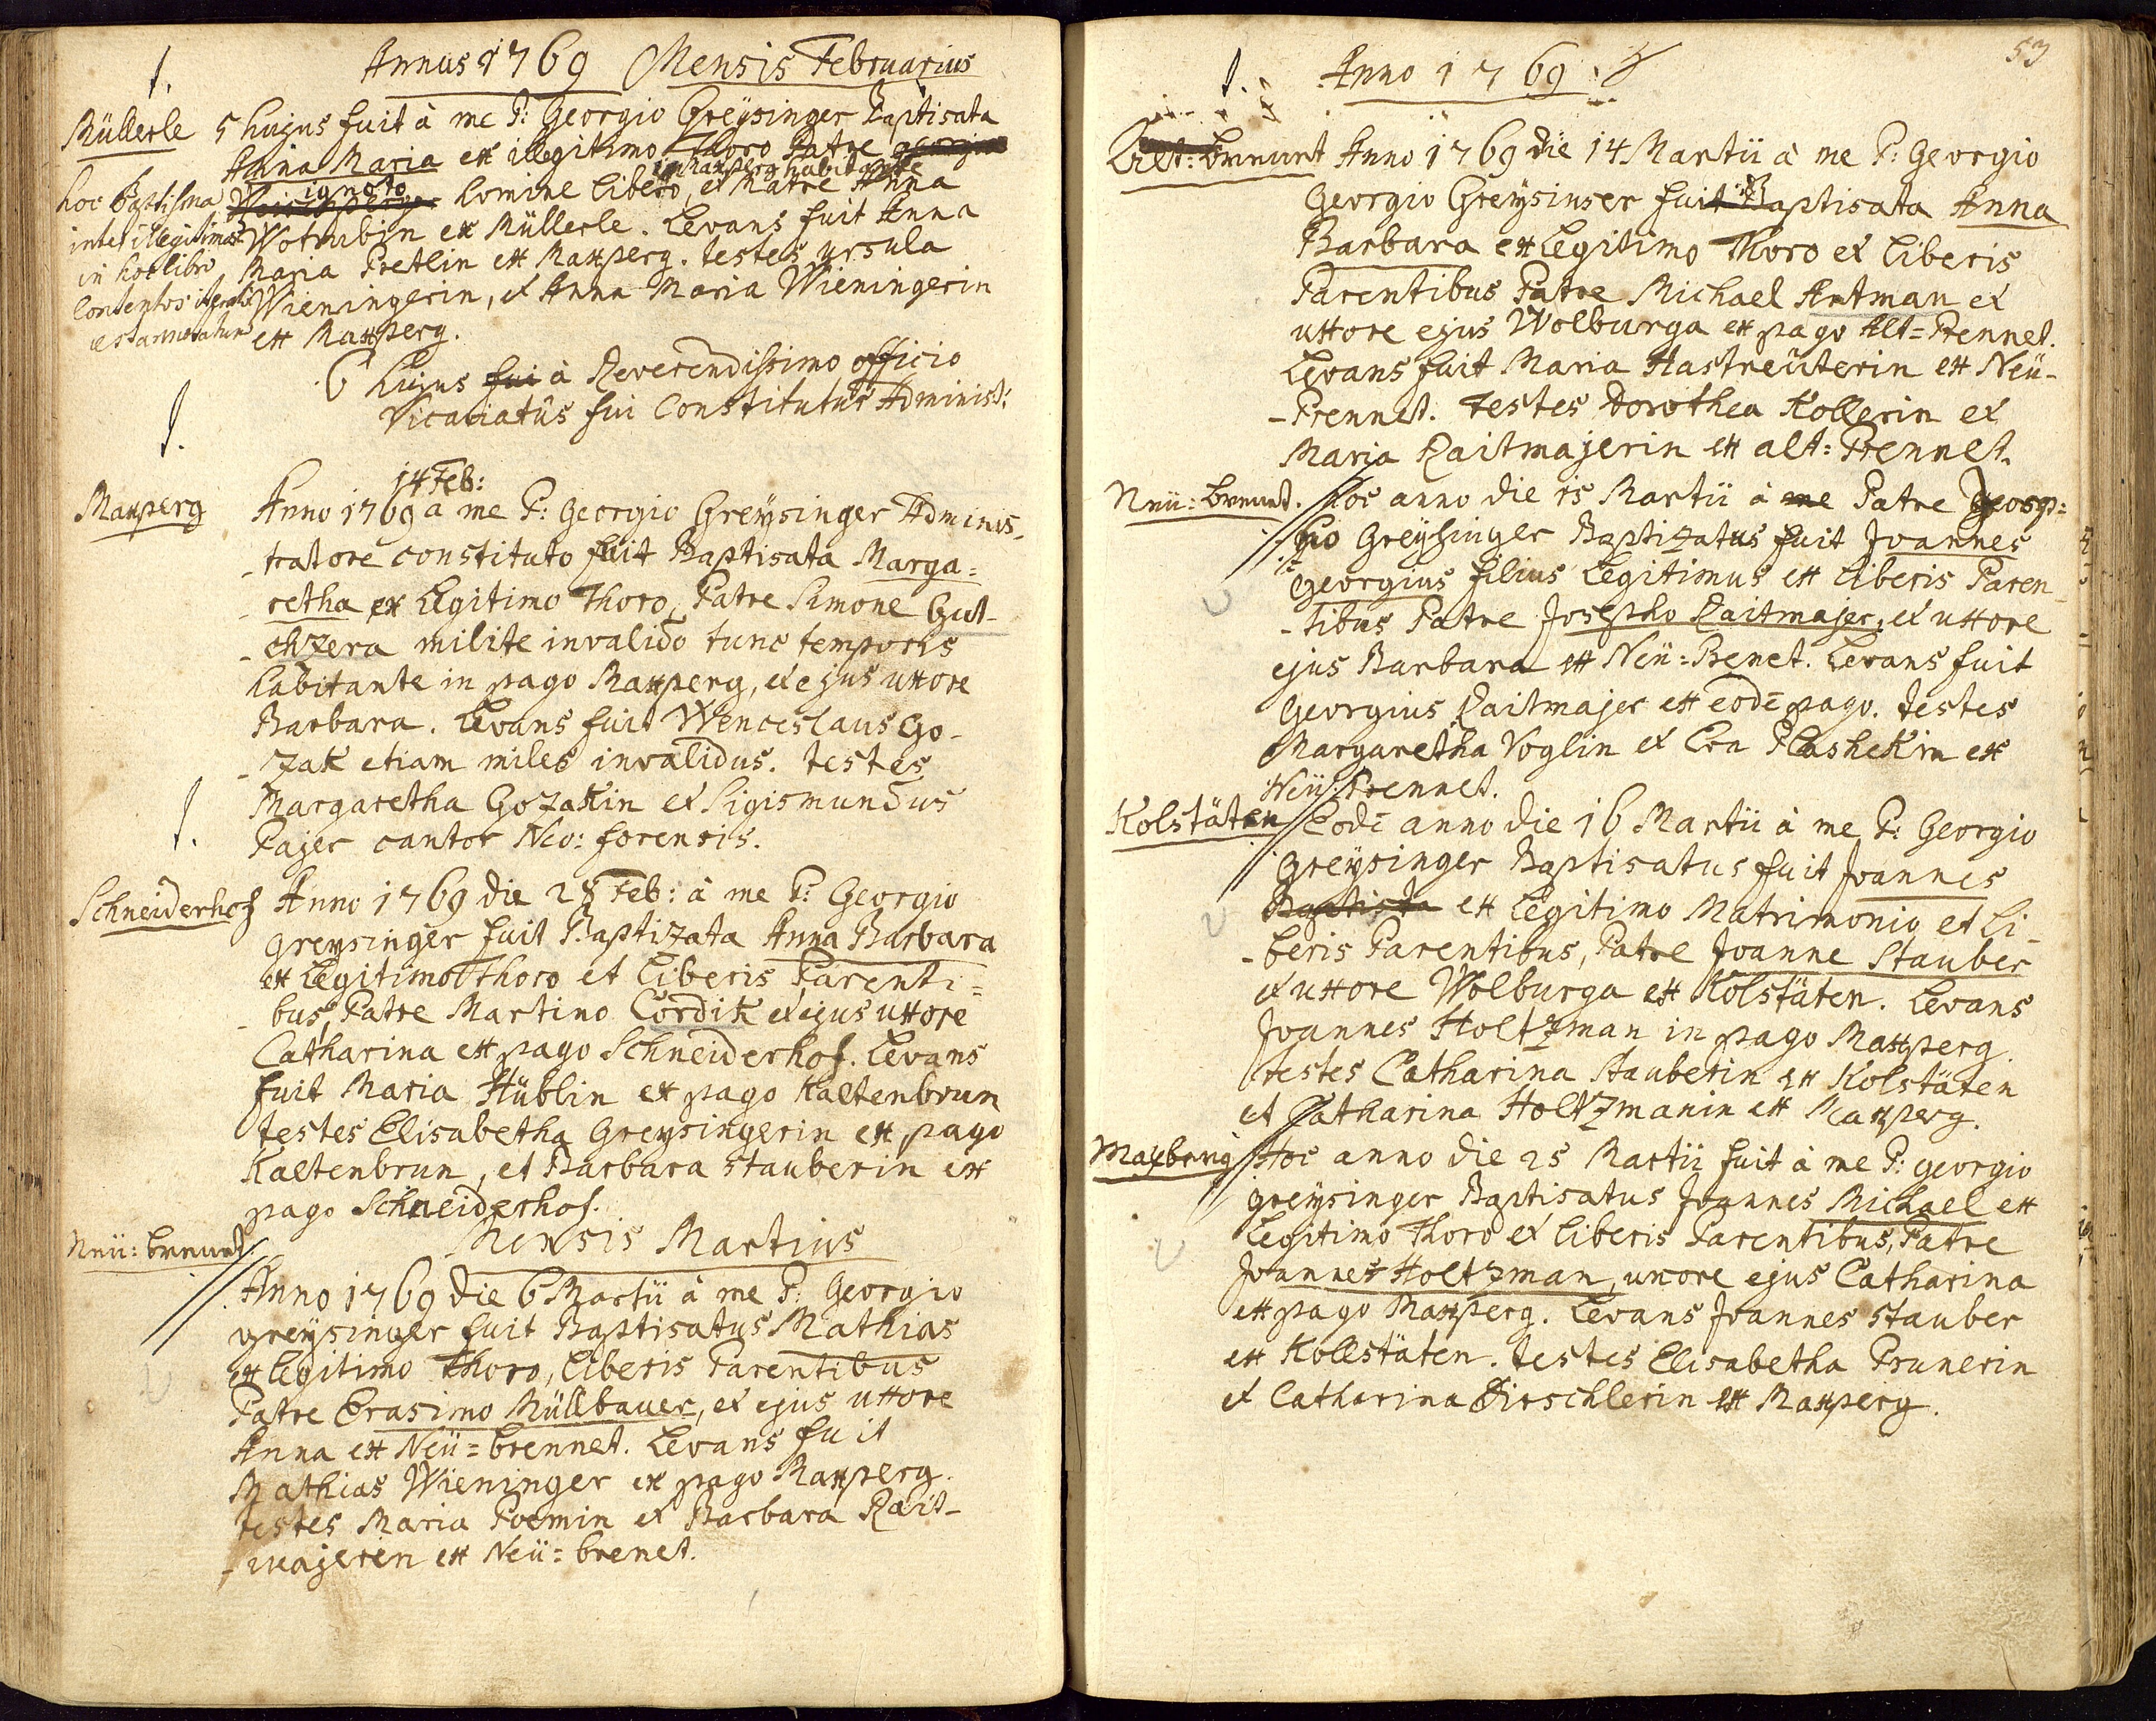 Annus 1769 Mensis Februarius
Müllerle 5 hujus fuit à me P: Georgio Greÿsinger Baptisata
Anna Maria ex illegitimo Thoro Patre
ignoto in Maxperg habitante
homine libero, et Matre Anna
Wotrubin ex Müllerle. Levans fuit Anna
Maria Pretlin ex Maxperg. testes ursula
Wieningerin, et Anna Maria Wieningerin
ex Maxperg.
hoc Baptisma
inter illegitimos
in hoc libro
contentos
est annotatum
6 hujus fui à Reverendissimo officio
Vicariatûs fui Constitutus Administ:
14 Feb:
Maxperg Anno 1769 a me P: Georgio Greÿsinger Adminis-
-tratore constituto fuit Baptisata Marga=
-retha ex Legitimo Thoro, Patre Simone Gut-
-chzera milite invalido tunc temporis
habitante in pago Maxperg, et ejus uxore
Barbara. Levans fuit Wenceslaus Go-
-zak etiam miles invalidus. testes
Margaretha Gozakin et Sigismundus
Pajer cantor Neo: forensis.
Schneiderhof Anno 1769 die 28 Feb: à me P: Georgio
Greysinger fuit Baptizata Anna Barbara
ex Legitimo Thoro et Liberis Parenti=
-bus, Patre Martino Cordik et ejus uxore
Catharina ex pago Schneiderhof. Levans
fuit Maria Hüblin ex pago Kaltenbrun
testes Elisabetha Greysingerin ex pago
Kaltenbrun, et Barbara Stauberin ex
pago Schneiderhof.
Mensis Martius
Neü: brennet.
Anno 1769 die 6 Martii à me P: Georgio
greÿsinger fuit Baptisatus Mathias
ex Legitimo Thoro, Liberis Parentibus
Patre Erasimo Müllbauer, et ejus uxore
Anna ex Neü=brennet. Levans fuit
Mathias Wieninger ex pago Maxperg.
testes Maria Poemin et Barbara Rait-
-majerin ex Neü=brenet.
53
Anno 1769
Alt: brennet Anno 1769 die 14 Martii à me P: Georgio
Georgio Greÿsinser fuit Baptisata Anna
Barbara ex Legitimo Thoro et Liberis
Parentibus Patre Michael Artman et
uxore ejus Wolburga ex pago Alt=Prennet.
Levans fuit Maria Hastreüterin ex Neü-
-Prennet. testes Dorothea Kollerin et
Maria Raitmajerin ex alt: Prennet.
Neü: brennet. Hoc anno die 15 Martii à me Patre Georg=
gio Greÿsinger Baptizatus fuit Joannes
Georgius filius Legitimus ex Liberis Paren-
-tibus Patre Josepho Raitmajer, et uxore
ejus Barbara ex Neü=Prenet. Levans fuit
Georgius Raitmajer ex eodē pago. testes
Margaretha Voglin et Eva Plashekin ex
Neü: Prennet.
Kolstäten Eodē anno die 16 Martii à me P: Georgio
Greÿsinger Baptisatus fuit Joannes
Baptista ex Legitimo Matrimonio et Li-
-beris Parentibus, Patre Joanne Stauber
et uxore Wolburga ex Kolstäten. Levans
Joannes Holtzman in pago Maxperg.
testes Catharina Stauberin ex Kolstäten
et Catharina Holtzmanin ex Maxperg.
Maxberg Hoc anno die 25 Martii fuit à me P: georgio
greÿsinger Baptisatus Joannes Michael ex
Legitimo Thoro et Liberis Parentibus, Patre
Joannes Holtzman, uxore ejus Catharina
ex pago Maxperg. Levans Joannes Stauber
ex Kollstäten. testes Elisabetha Prunerin
et Catharina Dirschlerin ex Maxperg.